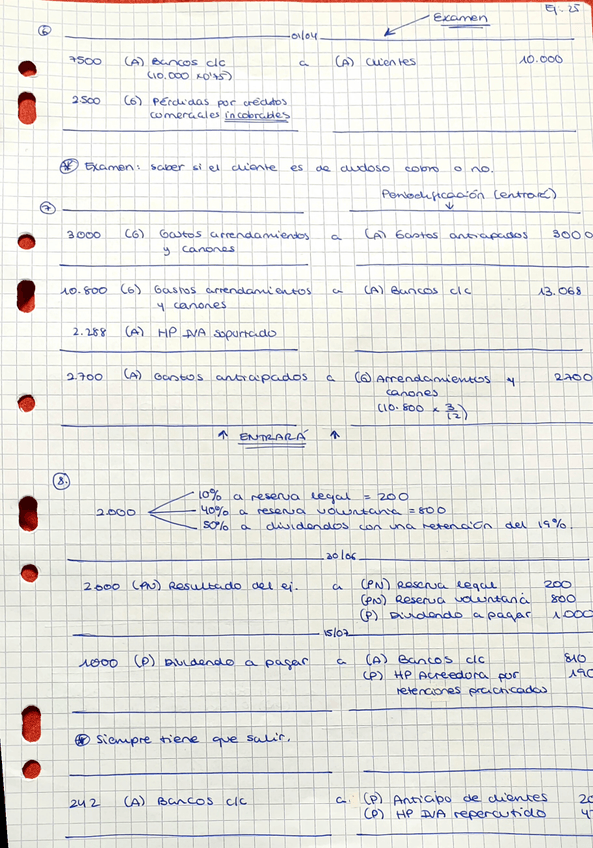 Ej. 25
Examen
⑥ 01/04
7500 (A) Bancos c/c a (A) Clientes 10.000
(10.000 x 0'75)
2.500 (G) Pérdidas por créditos
comerciales incobrables
* Examen: saber si el cliente es de dudoso cobro o no.
Periodificación (entrará)
⑦
3.000 (G) Gastos arrendamientos a (A) Gastos anticipados 3000
y canones
10.800 (G) Gastos arrendamientos a (A) Bancos c/c 13.068
y canones
2.288 (A) HP IVA soportado
2.700 (A) Gastos anticipados a (G) Arrendamientos y 2700
canones
(10.800 x 3/12)
↑ ENTRARÁ ↑
⑧.
10% a reserva legal = 200
2.000 40% a reserva voluntaria = 800
50% a dividendos con una retención del 19%.
30/06
2.000 (PN) Resultado del ej. a (PN) Reserva legal 200
(PN) Reserva voluntaria 800
(P) Dividendo a pagar 1.000
15/07
1000 (P) Dividendo a pagar a (A) Bancos c/c 810
(P) HP Acreedora por 190
retenciones practicadas
* Siempre tiene que salir.
242 (A) Bancos c/c a (P) Anticipo de clientes 20
(P) HP IVA repercutido 4